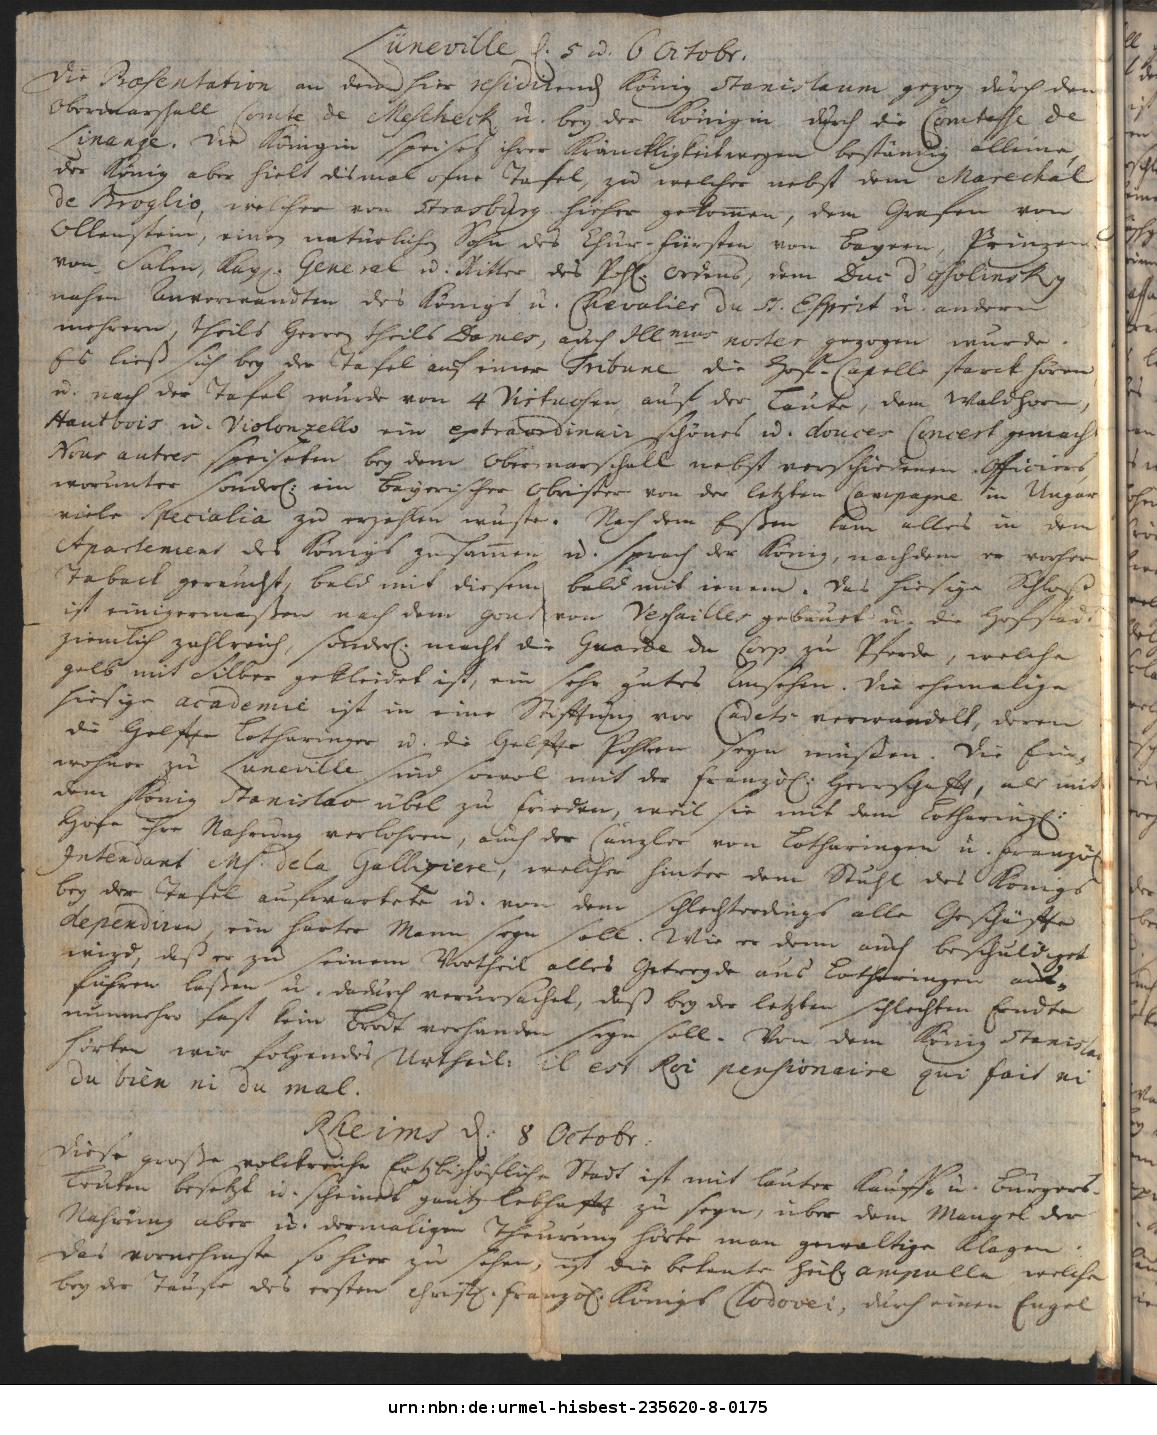 Lüneville d. 5 u. 6 Octobr.
Die Præsentation an dem hier residirend König Stanislaum gezog durch den
Obermarshall Comte de Mescheck u. bey der Königin durch die Comtesse de
Linange. Die Königin speiset ihrer Kräncklichkeit wegen beständig alleine,
der König aber hielt dismal ofne Tafel, zu welcher nebst dem Marechal
de Broglio, welcher von Strasburg hieher gekomen, dem Grafen von
Ollenstein, einen natürlichen Sohn des Chur-Fürsten von Bayern, Prinzen
von Salm, Kays. General u. Ritter des Pohl. Ordens, dem Duc d'Ossolinsky
nahen Anverwandten des Königs u. Chevalier du St. Esprit u. andern
mehrern, theils Herren theils Dames, auch Illmus noster gezogen wurde.
Es ließ sich bey der Tafel auf einer Tribune die Hof-Capelle starck hören,
u. nach der Tafel wurde von 4 Virtuosen auf der Laute, dem Waldhorn,
Hautbois u. Violonzello ein extraordinair schönes u. douces Concert gemacht
Nous autres speiseten bey dem Obermarschall nebst verschiedenen Officiers,
worunter sonderl. ein Bayerischer Obrister von der letzten Campagne in Ungar
viele Specialia zu erzehlen wuste. Nach dem Eßen kam alles in dem
Apartement des Königs zusamen u. sprach der König, nachdem er vorher
Taback geraucht, bald mit diesem bald mit jenem. Das hiesige Schloß
ist einigermaßen nach dem gout von Versailles gebauet u. die Hofstadt
ziemlich zahlreich, sonderl. macht die Guarde du Corp zu Pferde, welche
gelb mit Silber gekleidet ist, ein sehr gutes Ansehen. Die ehemalige
hiesige academie ist in eine Stifftung vor Cadets verwandelt, deren
die Helffte Lotharinger u. die Helffte Pohlen seyn müßen. Die Ein-
wohner zu Luneville sind sowol mit der französ. Herrschafft, als mit
dem König Stanislao übel zu frieden, weil sie mit dem Lotharing.
Hofe ihre Nahrung verlohren, auch der Canzler von Lotharingen u. französ.
Intendant Ms. de la Galliziere, welcher hinter dem Stuhl des Königs
bey der Tafel aufwartete u. von dem schlechterdings alle Geschäffte
dependiren, ein harter Mann seyn soll. Wie er denn auch beschuldiget
wird, daß er zu seinem Vortheil alles Getreyde aus Lotharingen aus-
führen laßen u. dadurch verursachet, daß bey der letzten schlechten Erndte
nunmehro fast kein Brodt vorhanden seyn soll. Von dem König Stanislao
hörten wir folgendes Urtheil: il est Roi pensionaire qui fait ni
du bien ni du mal.
Rheims d. 8 Octobr.
Diese große volckreiche Ertzbischöfliche Stadt ist mit lauter Kauff- u. Bürgers-
Leuten besetzt u. scheinet gantz lebhafft zu seyn, über dem Mangel der
Nahrung aber u. dermaligen Theurung hörte man gewaltige Klagen.
Das vornehmste so hier zu sehen, ist die bekante heil. ampulla welche
bey der Taufe des ersten christl. französ. Königs Clodovei, durch einen Engel